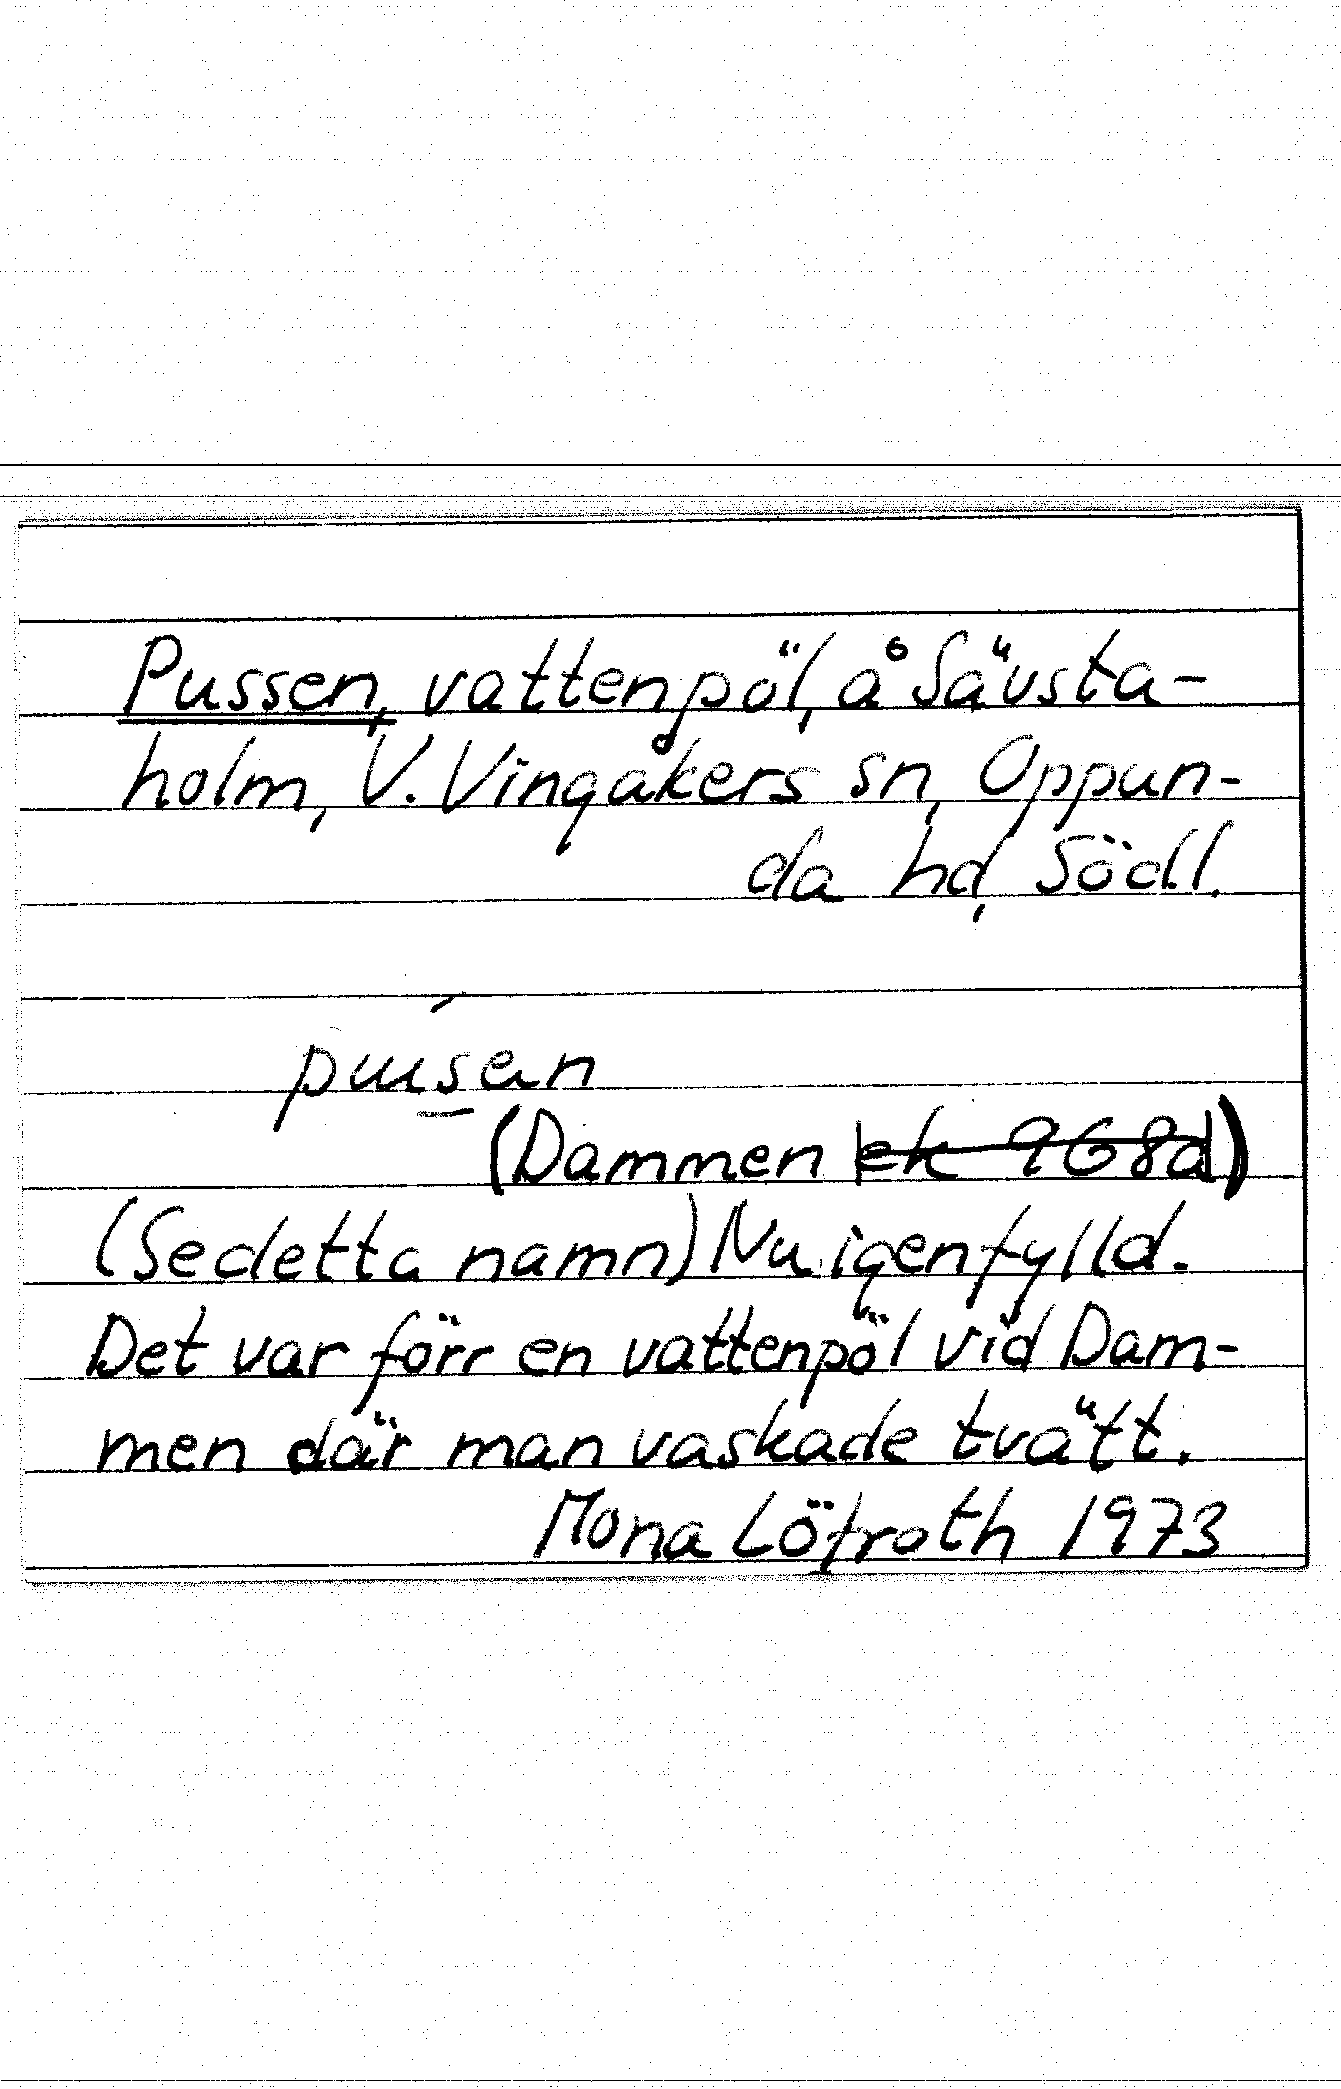 Pussen, vattenpöl, å Sävsta-
holm, V. Vingåkers sn, Oppun-
da hd, Södl.
(Dammen ek 9G8d)
(Se detta namn) Nu igenfylld.
Det var förr en vattenpöl vid Dam-
men där man vaskade tvätt.
Mona Löfroth 1973